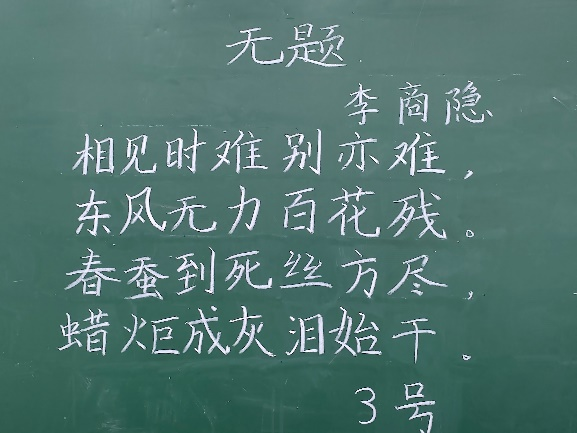 无题
李商隐
相见时难别亦难，
东风无力百花残。
春蚕到死丝方尽，
蜡炬成灰泪始干。
3号